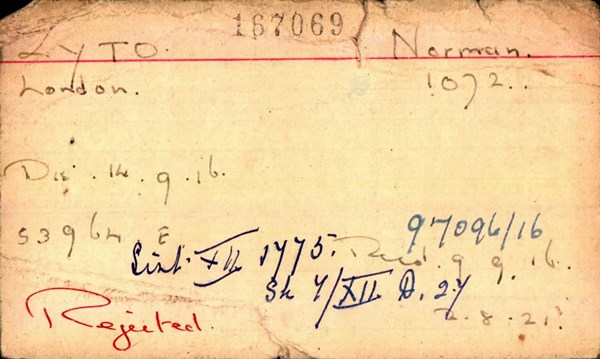 167069
LYTO. Norman.
London. 1072..
Dis. 14.9.16.
53964 E 97096/16
List XII 1775. Recd. 9 9.16..
Sh 7/XII D. 27
Rejected. 2.8.21.